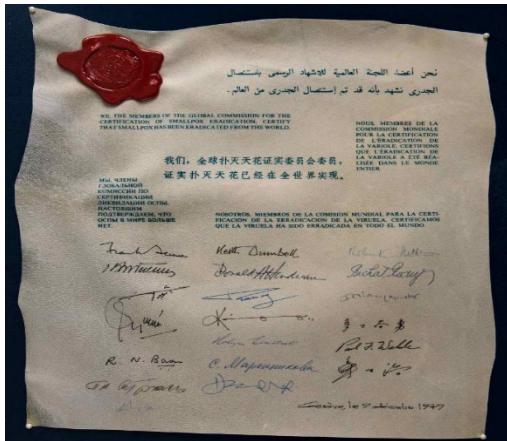 نحن أعضاء اللجنة العالمية للاشهاد الرسمي باستئصال
الجدرى نشهد بأنه قد تم إستئصال الجدرى من العالم.
WE, THE MEMBERS OF THE GLOBAL COMMISSION FOR THE
CERTIFICATION OF SMALLPOX ERADICATION, CERTIFY
THAT SMALLPOX HAS BEEN ERADICATED FROM THE WORLD.
NOUS, MEMBRES DE LA
COMMISSION MONDIALE
POUR LA CERTIFICATION
DE L'ÉRADICATION DE
LA VARIOLE, CERTIFIONS
QUE L'ÉRADICATION DE
LA VARIOLE A ÉTÉ RÉA-
LISÉE DANS LE MONDE
ENTIER
我们，全球扑灭天花证实委员会委员，
证实扑灭天花已经在全世界实现。
МЫ, ЧЛЕНЫ
ГЛОБАЛЬНОЙ
КОМИССИИ ПО
СЕРТИФИКАЦИИ
ЛИКВИДАЦИИ ОСПЫ,
НАСТОЯЩИМ
ПОДТВЕРЖДАЕМ, ЧТО
ОСПЫ В МИРЕ БОЛЬШЕ
НЕТ.
NOSOTROS, MIEMBROS DE LA COMISION MUNDIAL PARA LA CERTI-
FICACION DE LA ERADICACION DE LA VIRUELA, CERTIFICAMOS
QUE LA VIRUELA HA SIDO ERRADICADA EN TODO EL MUNDO
Frank Fenner
Keith Dumbell
Donald A Henderson
Paul F. Wehrle
R. N. Basu
С. Маренникова
Genève, le 9 décembre 1979